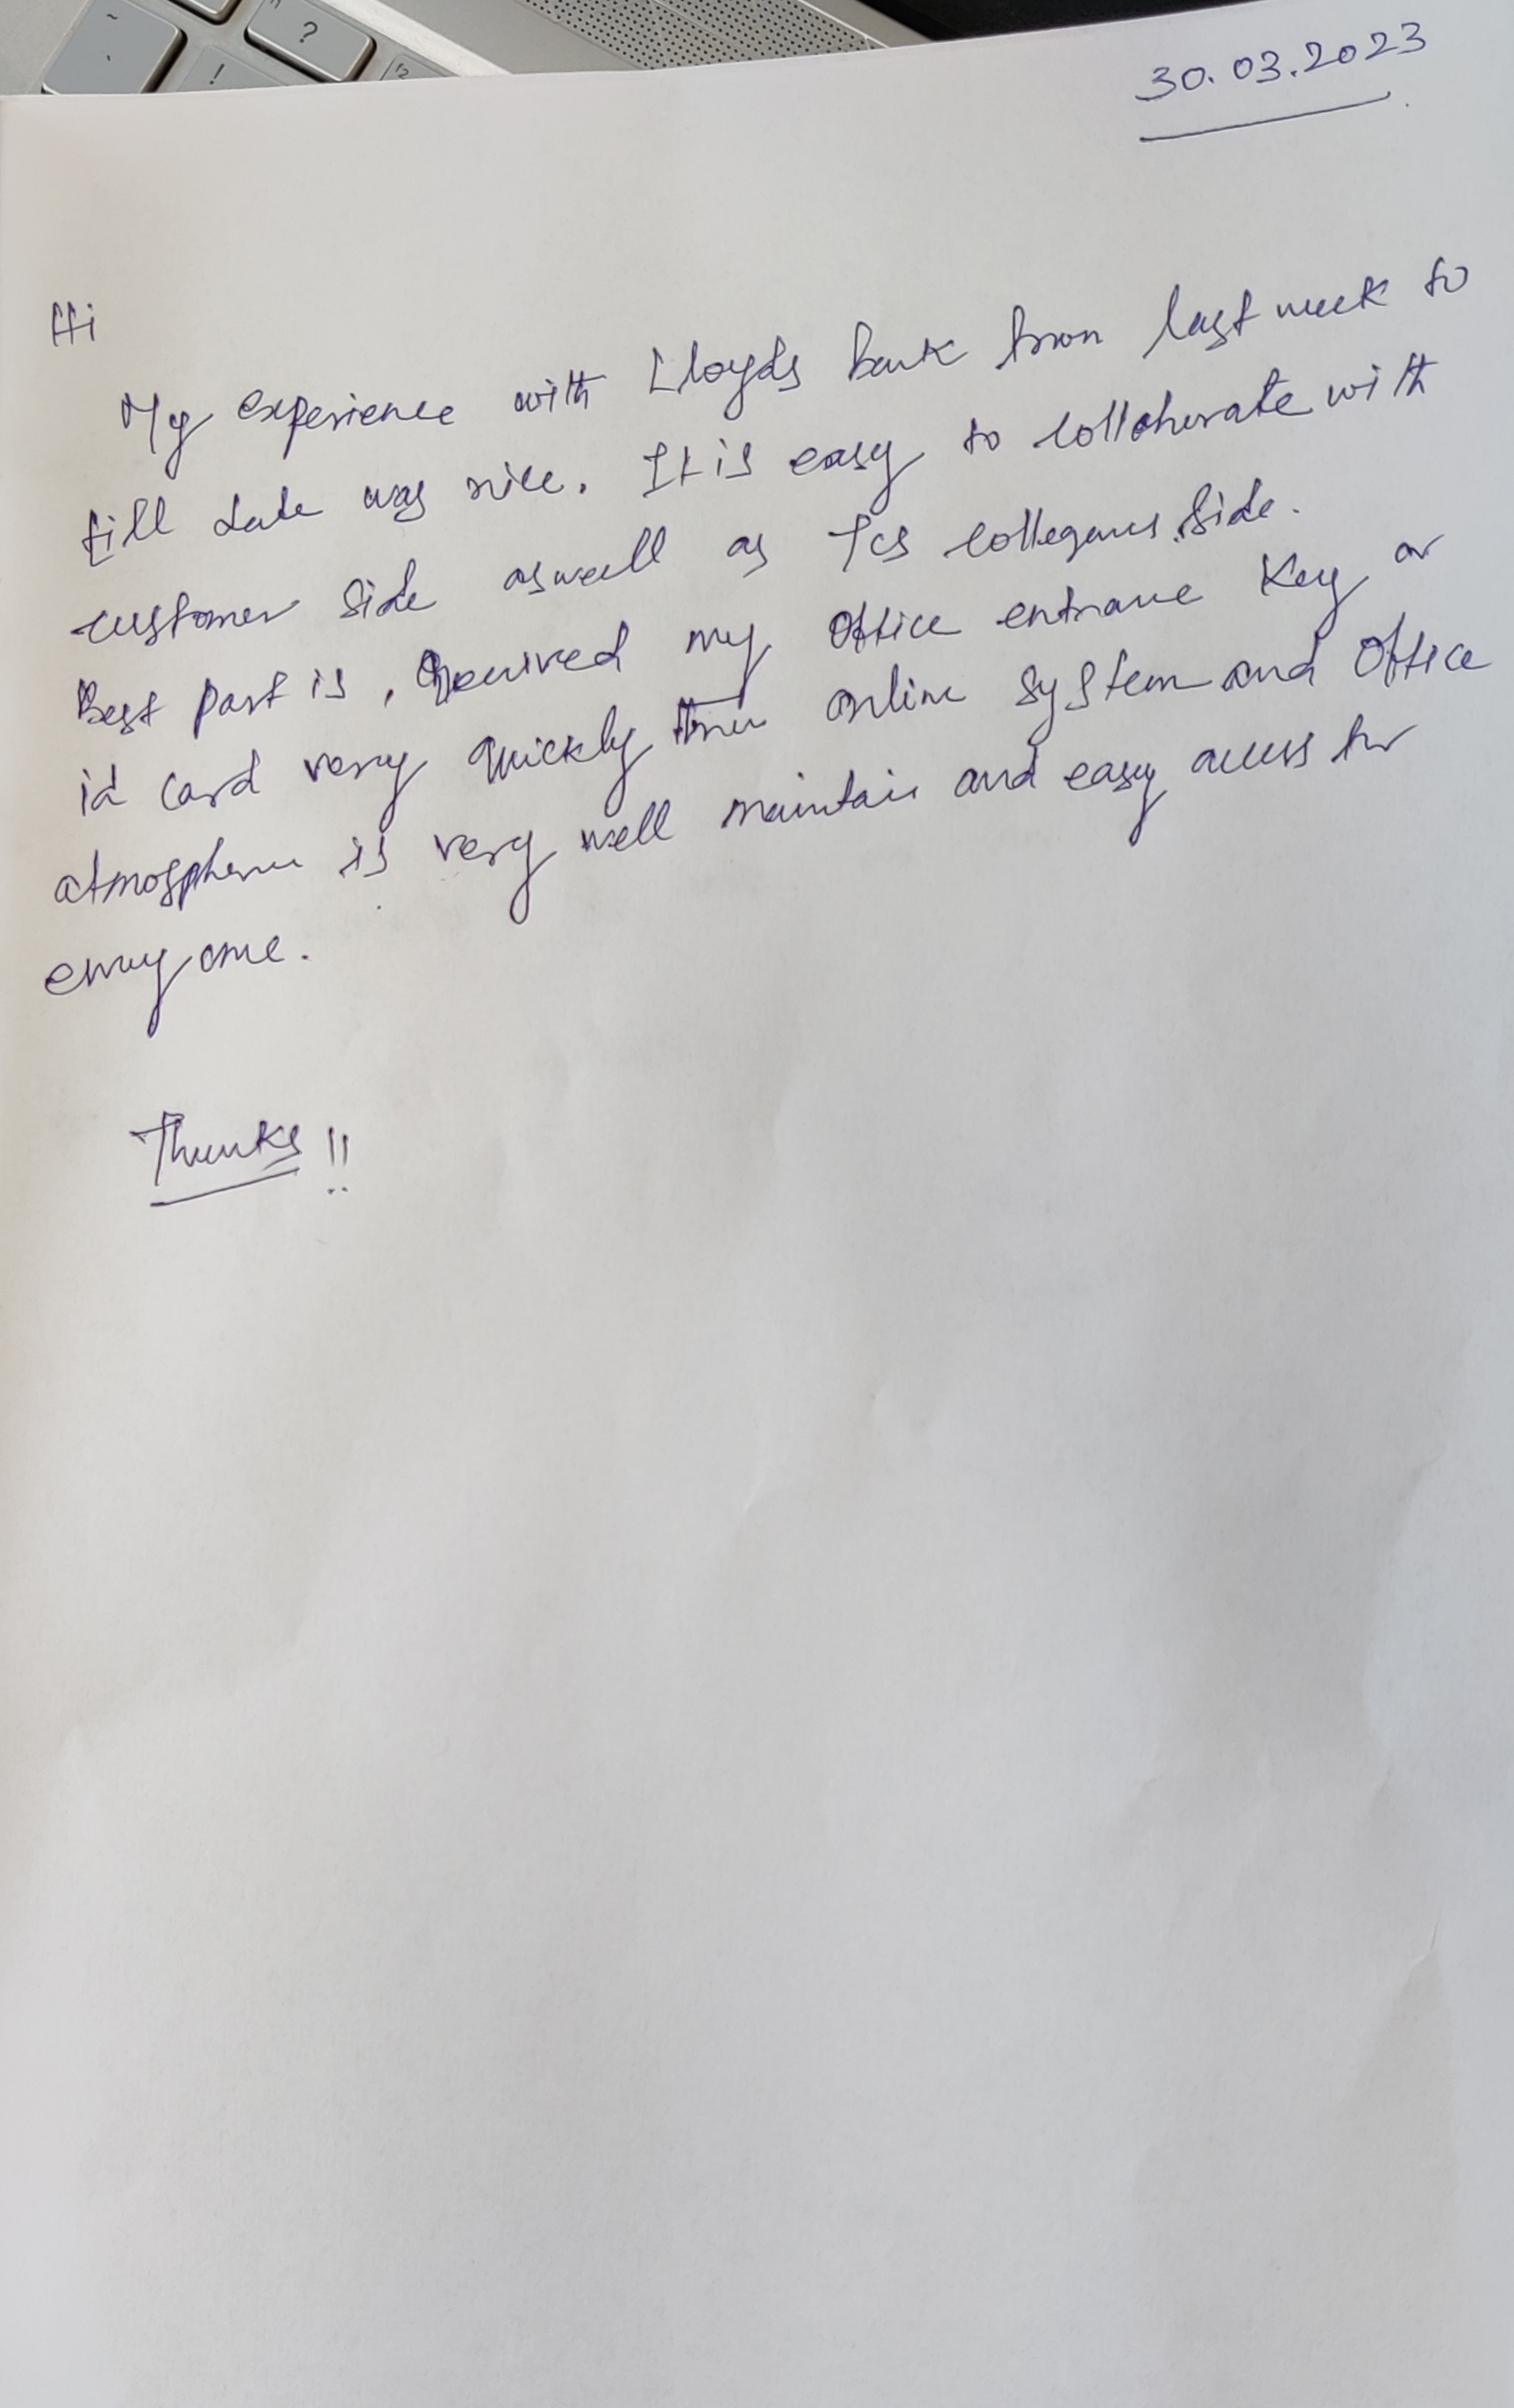 30.03.2023
Hi
My experience with Lloyds bank from last week to
till date was nice. It is easy to colloborate with
customer side aswell as Tcs collegaues side.
Best part is, Received my office entrance key or
id card very quickly thru online system and office
atmosphere is very well maintain and easy access for
every one.
Thanks !!